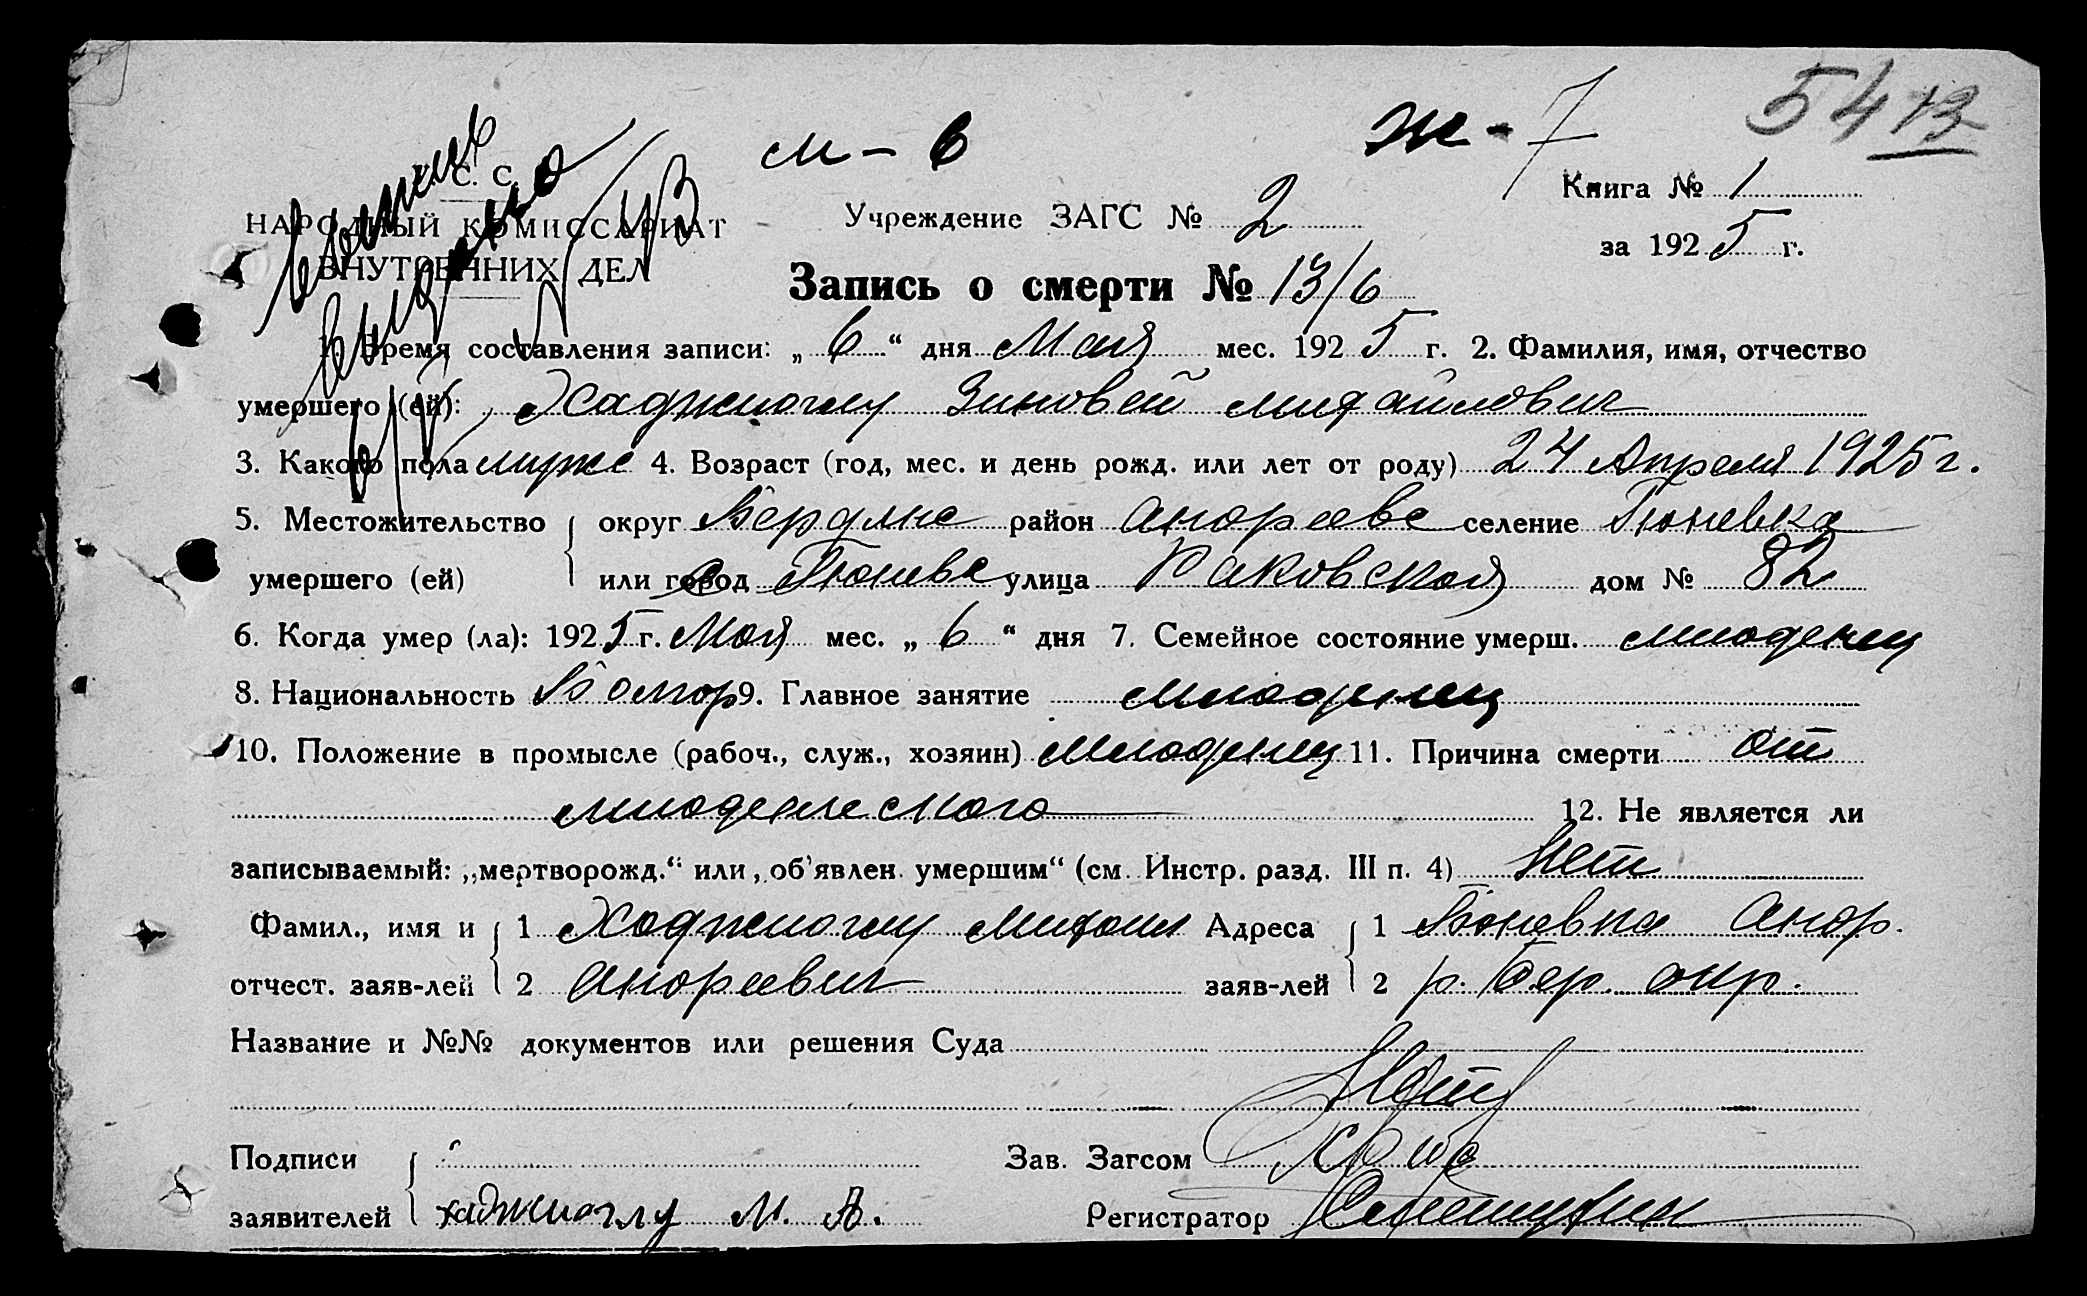 54 13
м - 6 Ж - 7
С. С.
Книга № 1
НАРОДНЫЙ КОМИССАРИАТ Учреждение ЗАГС № 2
за 1925 г.
ВНУТРЕННИХ ДЕЛ
Запись о смерти № 13/6
1. Время составления записи: „ 6 “ дня Мая мес. 1925 г. 2. Фамилия, имя, отчество
умершего (ей): Хаджиоглу Зиновей Михайлович
3. Какого пола мужс 4. Возраст (год, мес. и день рожд. или лет от роду) 24 Апреля 1925 г.
5. Местожительство округ Бердянс район Андреевс селение Гюневка
умершего (ей) или город с Гюневс улица Раковская дом № 82
6. Когда умер (ла): 1925 г. Мая мес. „ 6 “ дня 7. Семейное состояние умерш. младенец
8. Национальность Болгор 9. Главное занятие младенец
10. Положение в промысле (рабоч., служ., хозяин) младенец 11. Причина смерти от
младенческого 12. Не является ли
записываемый: „мертворожд.“ или „об’явлен. умершим“ (см. Инстр. разд. III п. 4) Нет
Фамил., имя и 1 Хаджиоглу Михаил Адреса 1 Гюневка Андр.
отчест. заяв-лей 2 Андреевич заяв-лей 2 р. Бер. окр.
Название и №№ документов или решения Суда
Подписи Зав. Загсом
заявителей хаджиоглу М. А. Регистратор